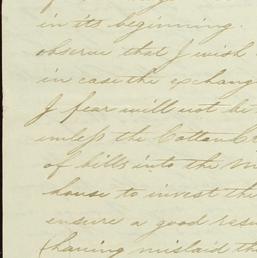 in its beginning.
observe that I wish
in case the exchang
I fear will not be
unless the Cotton
of bills into the M
house to invest the
ensure a good resu
(having mislaid th